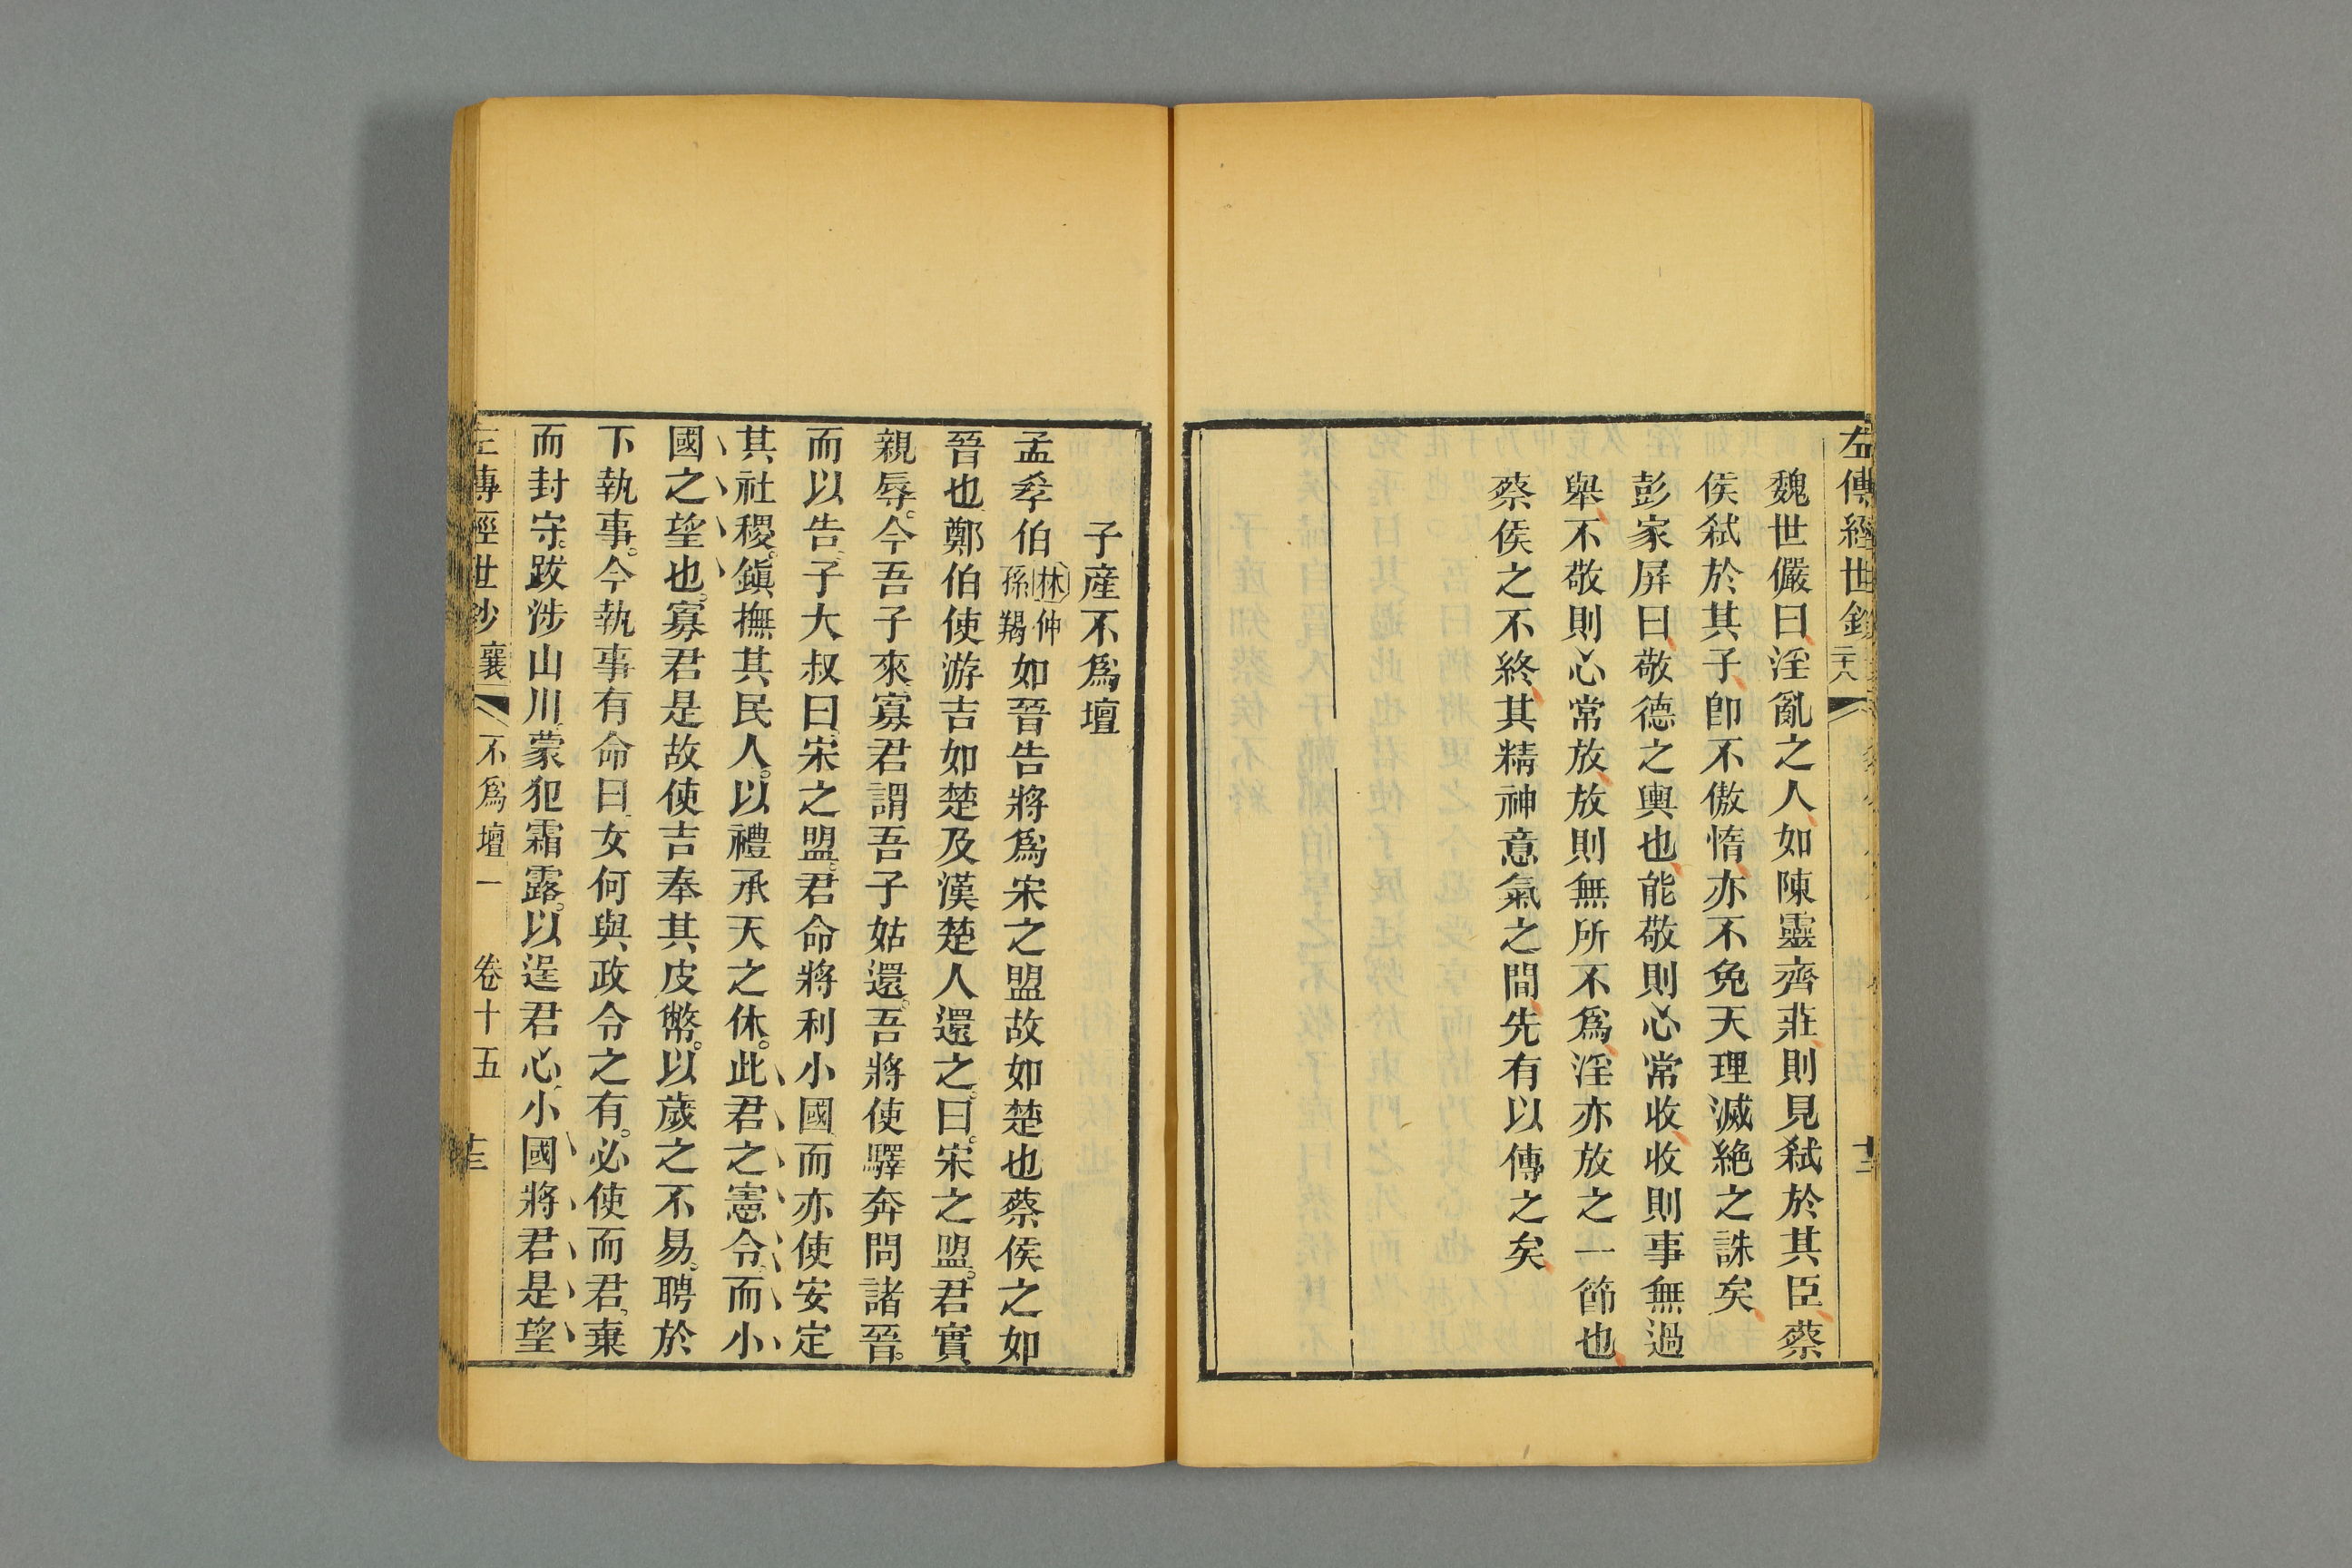 左傳經世鈔
二十八
魏世儼曰淫亂之人如陳靈齊莊則見弒於其臣蔡
侯弒於其子卽不傲惰亦不免天理滅絶之誅矣
彭家屏曰敬德之輿也能敬則心常收收則事無過
舉不敬則心常放放則無所不爲淫亦放之一節也
蔡侯之不終其精神意氣之間先有以傳之矣
子產不爲壇
孟孝伯林仲孫羯如晉告將爲宋之盟故如楚也蔡侯之如
晉也鄭伯使游吉如楚及漢楚人還之曰宋之盟君實
親辱。今吾子來寡君謂吾子姑還。吾將使驛奔問諸晉。
而以告。子大叔曰宋之盟。君命將利小國而亦使安定
其社稷。鎭撫其民人。以禮承天之休。此君之憲令、而小
國之望也。寡君是故使吉奉其皮幣。以歲之不易。聘於
下執事。今執事有命曰、女何與、政令之有。必使而君。棄
而封守。跋涉山川、蒙犯霜露。以逞君心、小國將君是望
左傳經世鈔 襄 不爲壇一 卷十五 十三